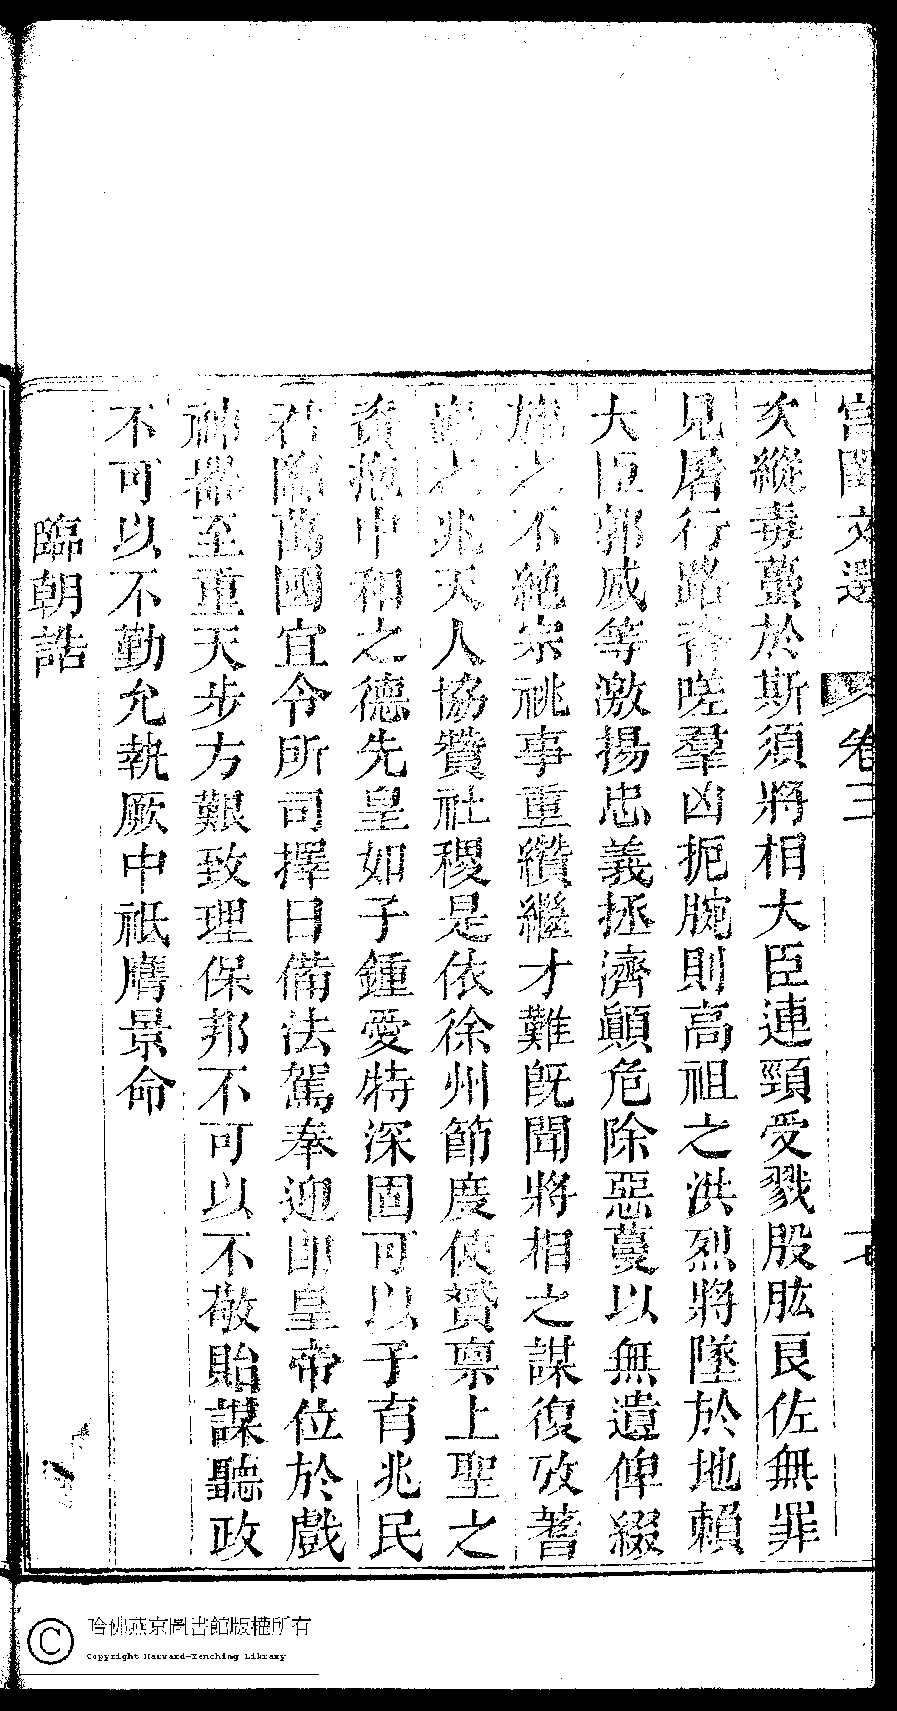 宮閨文選 卷三
火縱毒蠆於斯須將相大臣連頸受戮股肱良佐無罪
見屠行路咨嗟羣凶扼腕則高祖之洪烈將墜於地賴
大臣郭威等激揚忠義拯濟顚危除惡蔓以無遺俾綴
旒之不絶宗祧事重纘繼才難旣聞將相之謀復攷蓍
龜之兆天人協贊社稷是依徐州節度使贇禀上聖之
資抱中和之德先皇如子鍾愛特深固可以子育兆民
君臨萬國宜令所司擇日備法駕奉迎卽皇帝位於戲
神器至重天步方艱致理保邦不可以不敬貽謀聽政
不可以不勤允執厥中祗膺景命
臨朝誥
哈佛燕京圖書館版權所有
Copyright Harvard-Yenching Library